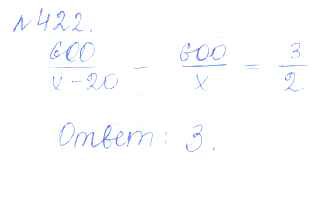 №422.
600/(x-20) - 600/x = 3/2
Ответ: 3.